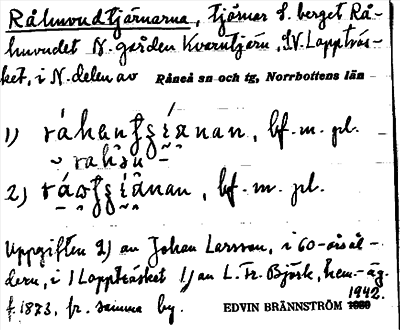 Råhmundtjärnarna, tjärnar S. berget Rå-
hmundet N. gården Kvarntjärn, SV. Lappträs-
ket, i N. delen av Råneå sn och tg, Norrbottens län
1) bf. m. pl.
2) bf. m. pl.
Uppgiften 2) av Johan Larsson, i 60-årsål-
dern, i Lappträsket 1) av L. Fr. Björk, hem.-äg.
f. 1873, fr. samma by. 1942.
EDVIN BRÄNNSTRÖM